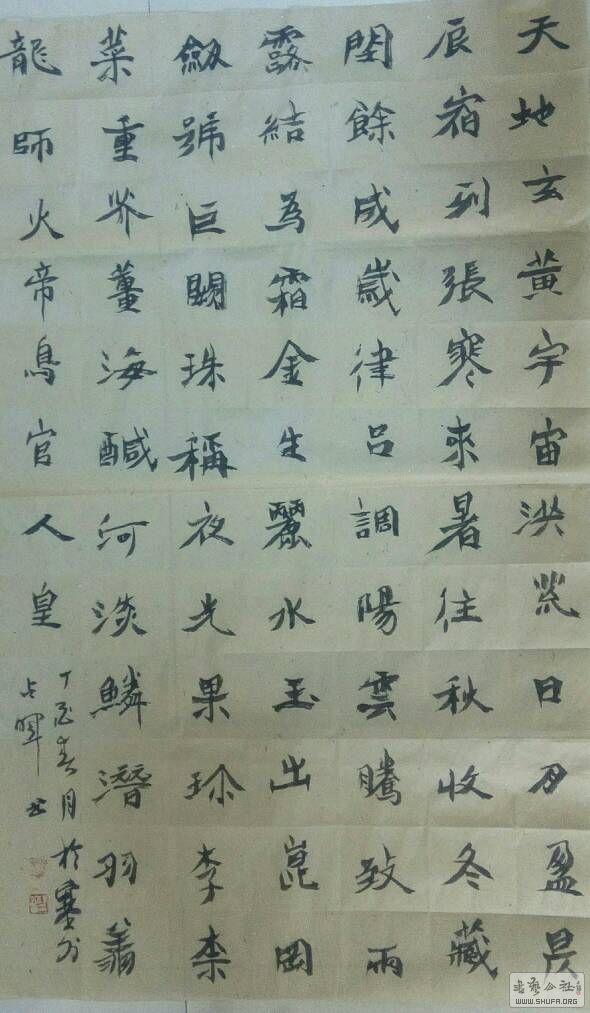 天地玄黃宇宙洪荒日月盈昃
辰宿列張寒來暑往秋收冬藏
閏餘成歲律呂調陽雲騰致雨
露結為霜金生麗水玉出崑岡
劔號巨闕珠稱夜光果珎李柰
菜重芥薑海醎河淡鱗潛羽翔
龍師火帝鳥官人皇
丁酉春月於塞外
占暉书
书艺公社
WWW.SHUFA.ORG